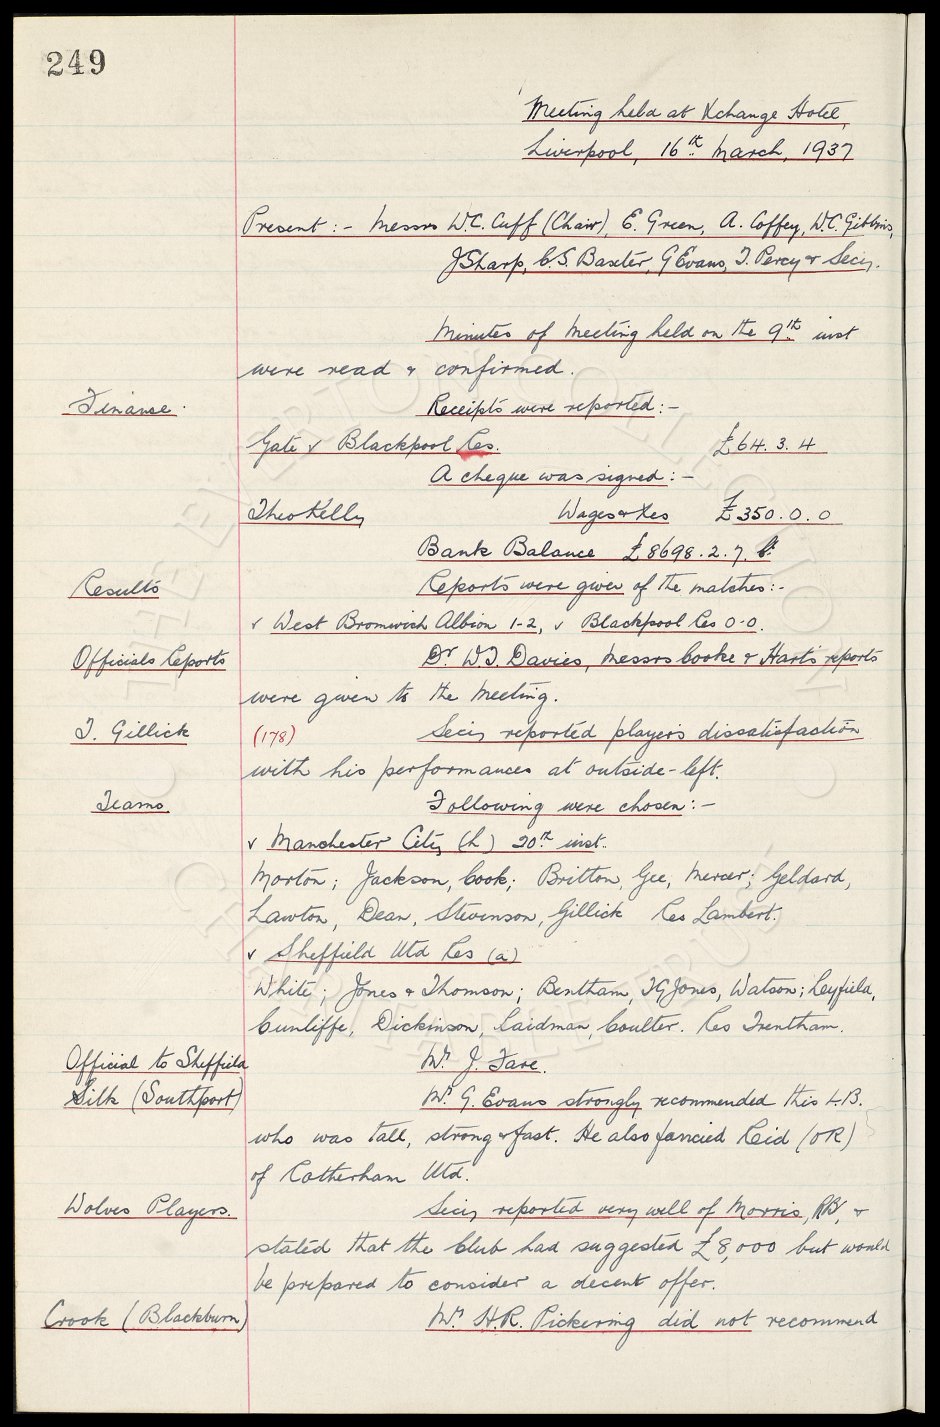 249
Meeting held at Xchange Hotel,
Liverpool, 16th March, 1937
Present :- Messrs W.C. Cuff (Chair), E. Green, A. Coffey, W.C. Gibbins,
J Sharp, C.S. Baxter, G Evans, T. Percy & Secy.
Minutes of Meeting held on the 9th inst
were read & confirmed.
Finance. Receipts were reported :-
Gate v Blackpool Res. £64. 3. 4
A cheque was signed :-
Theo Kelly Wages & Xes £350. 0. 0
Bank Balance £8698. 2. 7.
Results Reports were given of the matches :-
v West Bromwich Albion 1-2, v Blackpool Res 0-0.
Officials Reports Dr W.J. Davies, Messrs Cooke & Hart's reports
were given to the Meeting.
T. Gillick (178) Secy reported player's dissatisfaction
with his performances at outside-left.
Teams. Following were chosen :-
v Manchester City (h) 20th inst.
Morton; Jackson, Cook; Britton, Gee, Mercer; Geldard,
Lawton, Dean, Stevenson, Gillick Res Lambert.
v Sheffield Utd Res (a)
White; Jones & Thomson; Bentham, TG Jones, Watson; Leyfield,
Cunliffe, Dickinson, Laidman, Coulter. Res Trentham.
Official to Sheffield Mr J. Fare.
Silk (Southport) Mr G. Evans strongly recommended this L.B.
who was tall, strong & fast. He also fancied Reid (OR)
of Rotherham Utd.
Wolves Players. Secy reported very well of Morris, RB, &
stated that the Club had suggested £8,000 but would
be prepared to consider a decent offer.
Crook (Blackburn) Mr H.R. Pickering did not recommend
THE EVERTON COLLECTION
CHARITABLE TRUST